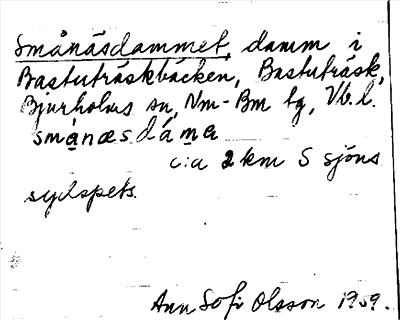 Smånäsdammet, damm i
Bastuträskbäcken, Bastuträsk,
Bjurholms sn, Nm-Bm tg, Vb. l.
smånæsdáma
c:a 2 km S sjöns
sydspets.
Ann Sofi Olsson 1959.